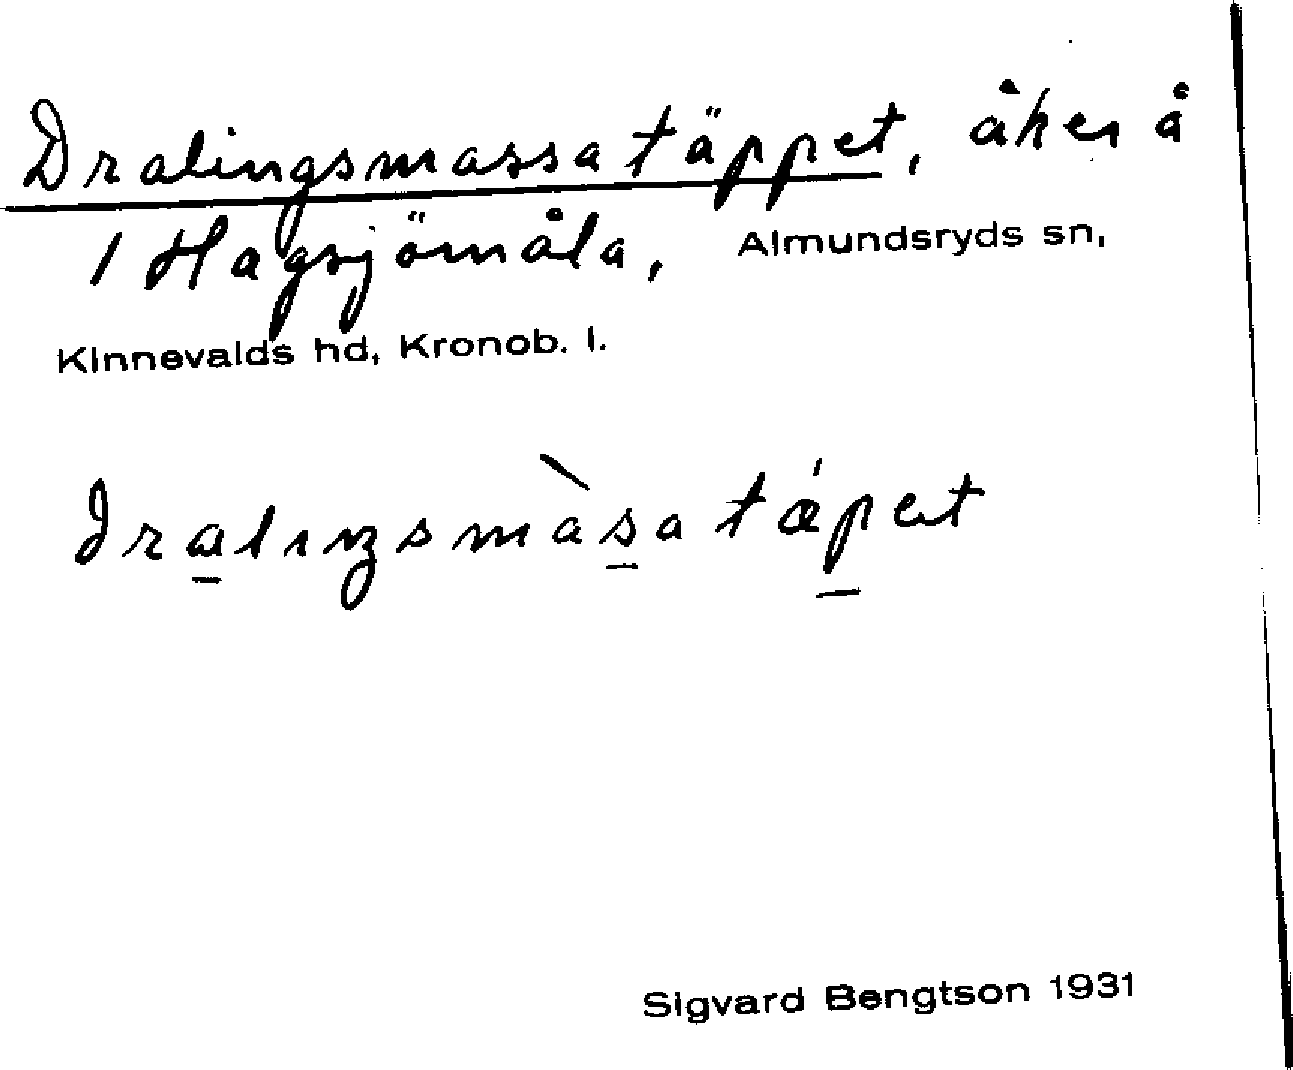 Dralingsmassatäppet, åker å
1 Hagsjömåla, Almundsryds sn,
Kinnevalds hd, Kronob. l.
dralıŋsmàsatǽpet
Sigvard Bengtson 1931